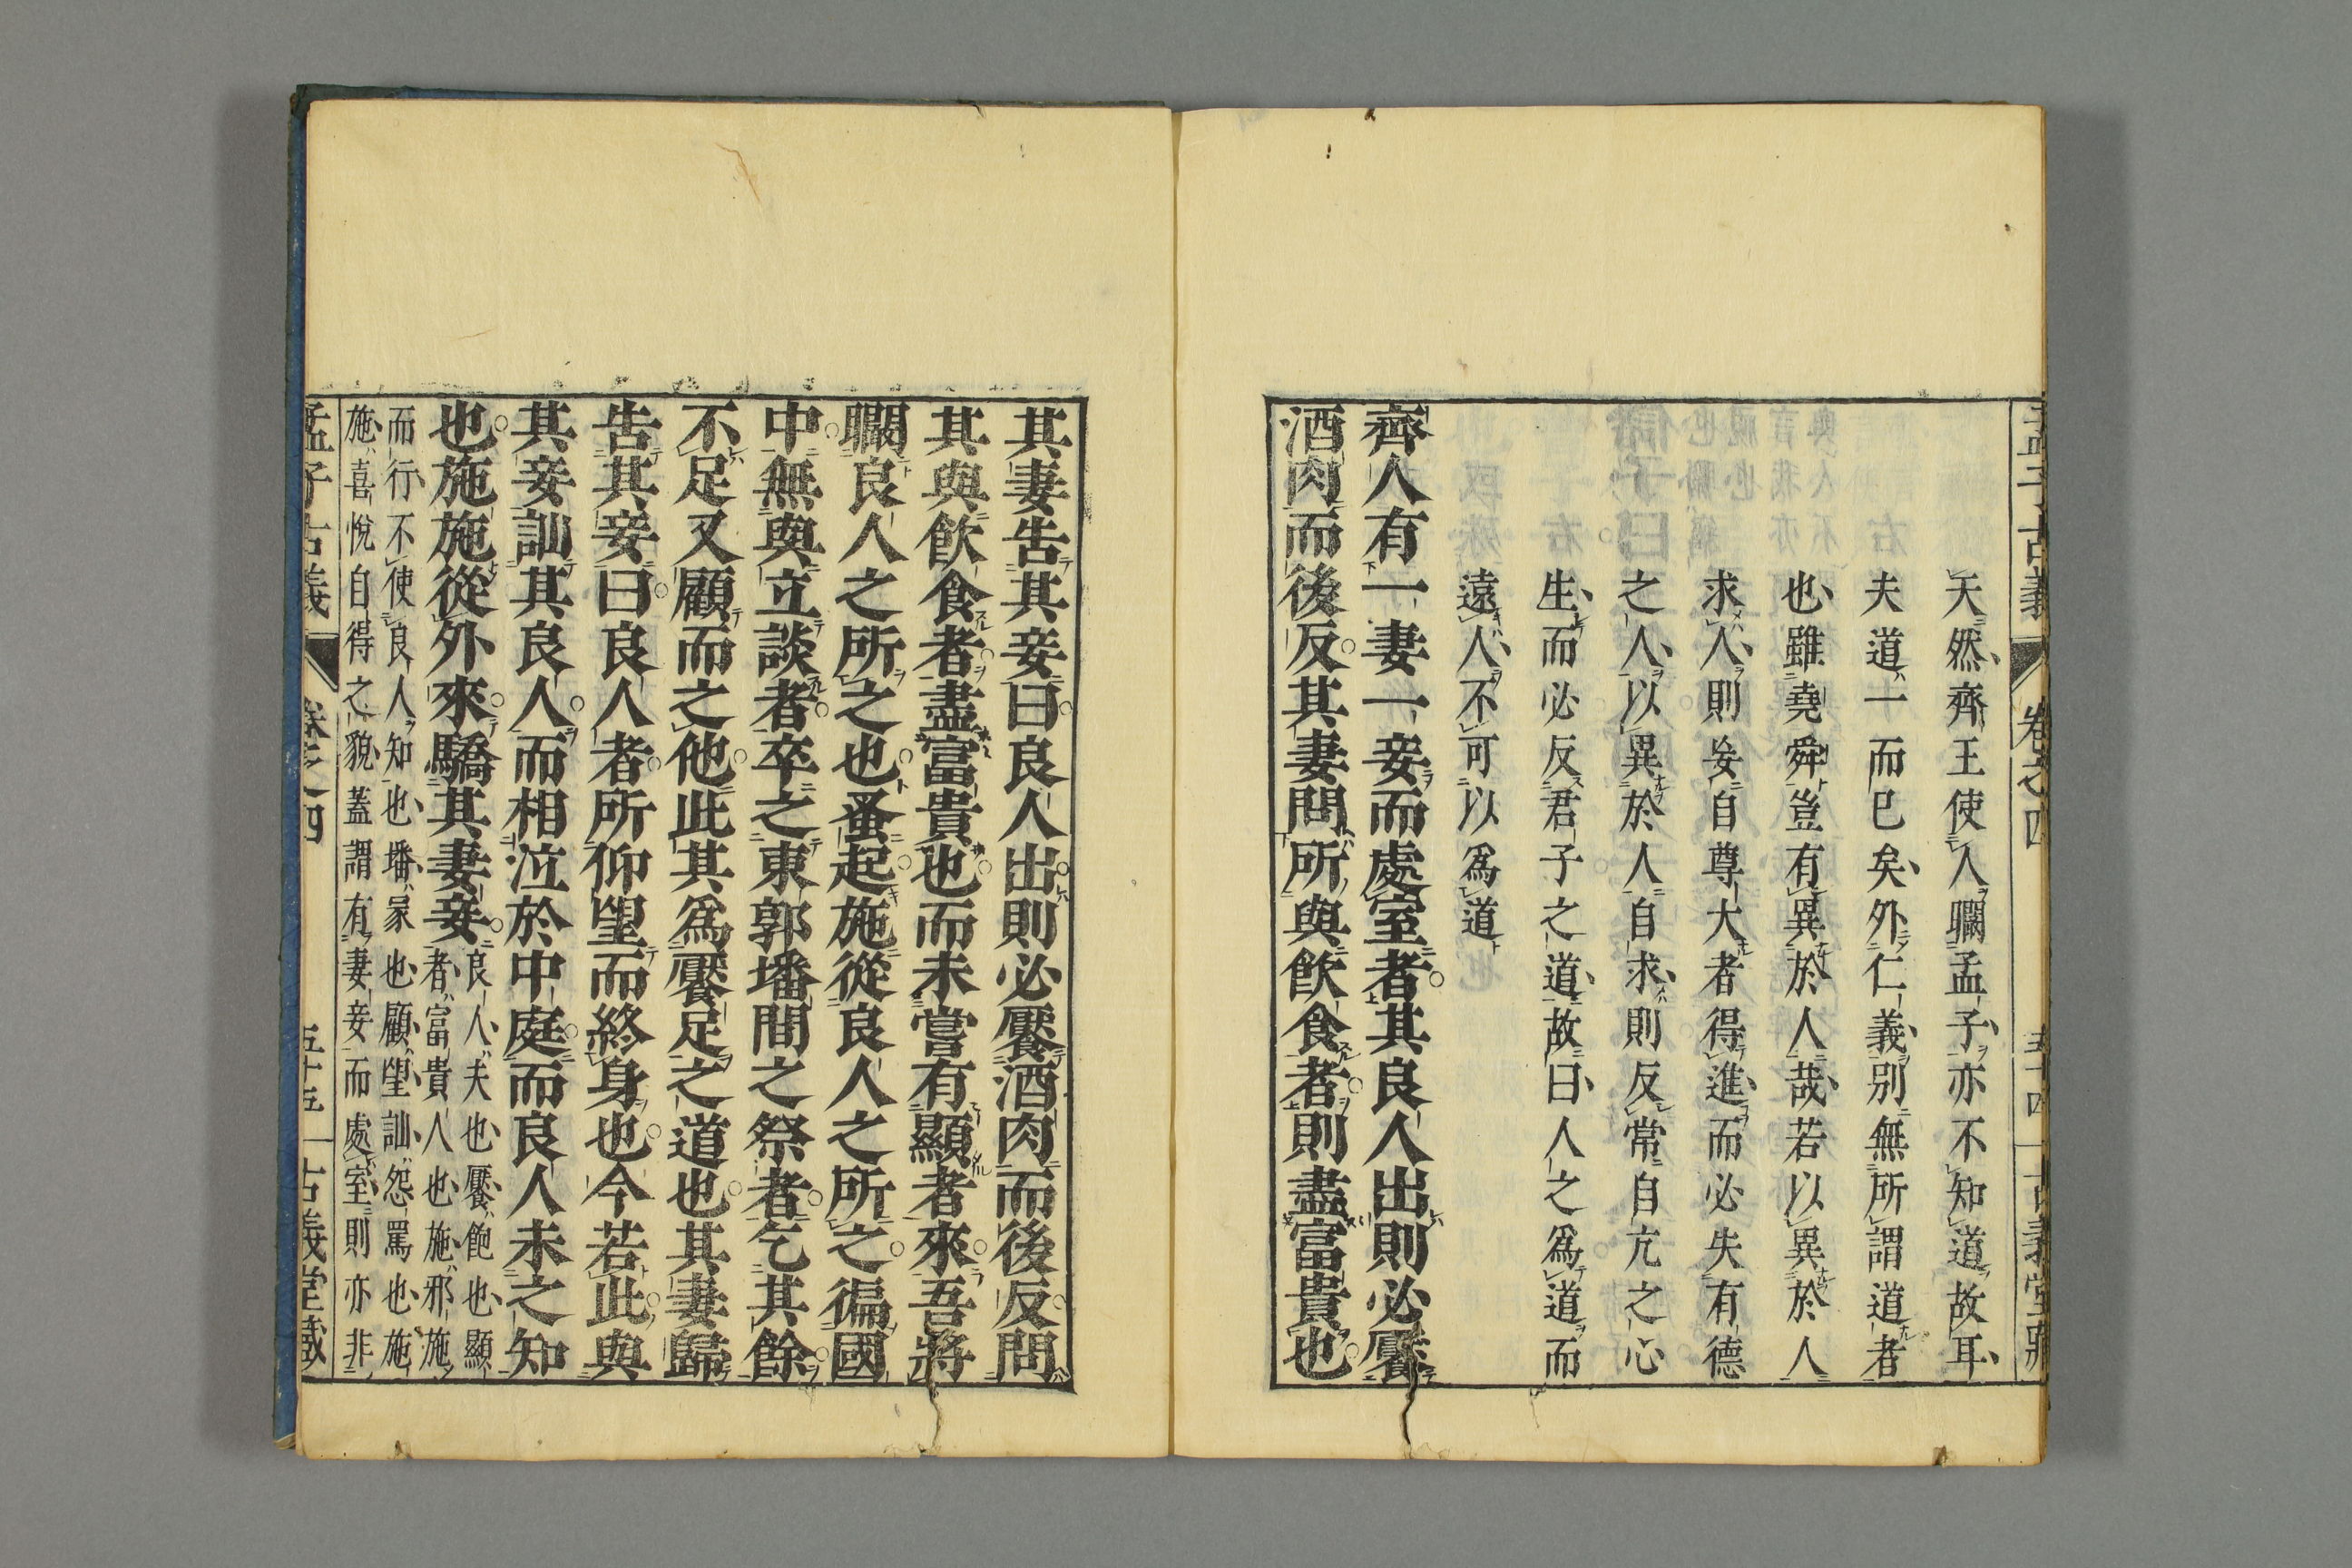 孟子古義 卷之四 五十四 古義堂藏
夭然齊王使人瞷孟子亦不知道故耳
夫道一而已矣外仁義別無所謂道者
也雖堯舜豈有異於人哉若以異於人
求人則妄自尊大者得進而必失有德
之人以異於人自求則反常自亢之心
生而必反君子之道故曰人之爲道而
遠人不可以爲道
齊人有一妻一妾而處室者其良人出則必饜
酒肉而後反其妻問所與飮食者則盡富貴也
其妻告其妾曰良人出則必饜酒肉而後反問
其與飮食者盡富貴也而未嘗有顯者來吾將
瞷良人之所之也蚤起施從良人之所之徧國
中無與立談者卒之東郭墦間之祭者乞其餘
不足又顧而之他此其爲饜足之道也其妻歸
告其妾曰良人者所仰望而終身也今若此與
其妾訕其良人而相泣於中庭而良人未之知
也施施從外來驕其妻妾
良人夫也饜飽也顯
者富貴人也施邪施
而行不使良人知也墦冢也顧望訕怨罵也施
施喜悅自得之貌蓋謂有妻妾而處室則亦非
孟子古義 卷之四 五十五 古義堂藏